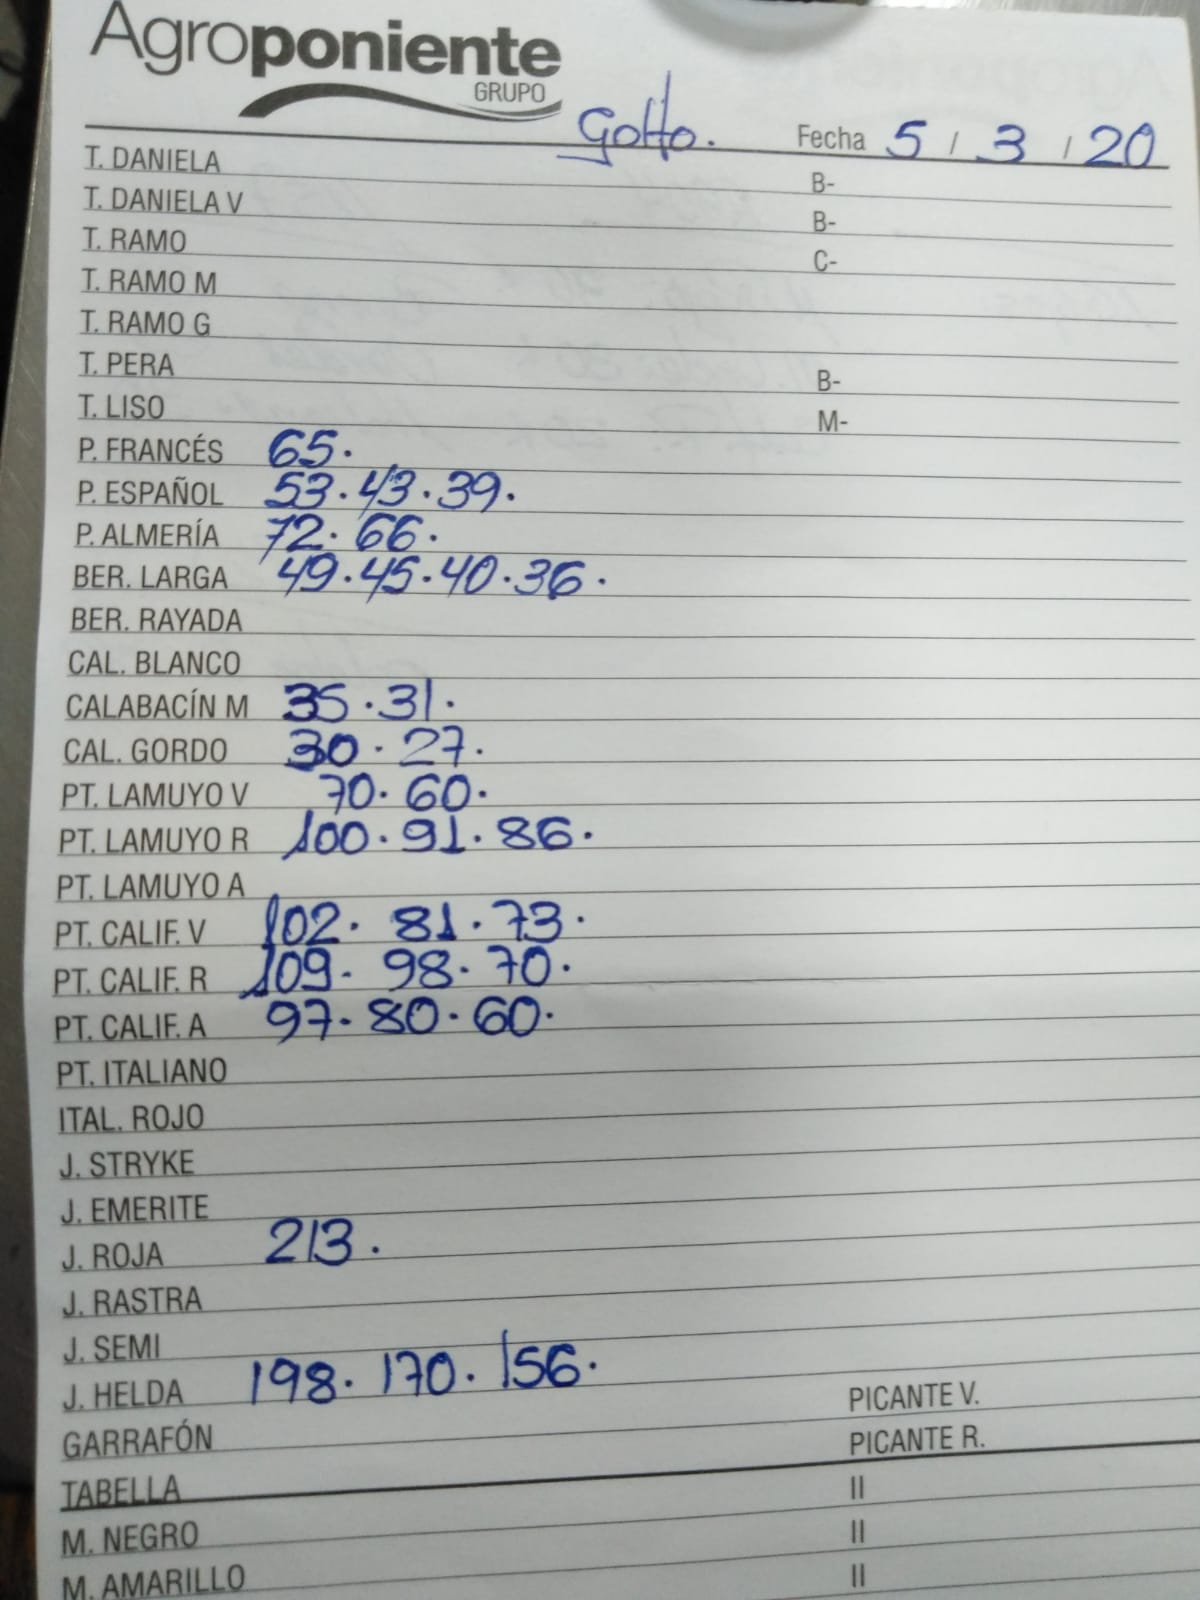 Agroponiente
GRUPO
Golfo. Fecha 5 / 3 / 20
T. DANIELA B-
T. DANIELA V B-
T. RAMO C-
T. RAMO M
T. RAMO G
T. PERA B-
T. LISO M-
P. FRANCÉS 65.
P. ESPAÑOL 53.43.39.
P. ALMERÍA 72.66.
BER. LARGA 49.45.40.36.
BER. RAYADA
CAL. BLANCO
CALABACÍN M 35.31.
CAL. GORDO 30.27.
PT. LAMUYO V 70.60.
PT. LAMUYO R 100.91.86.
PT. LAMUYO A
PT. CALIF. V 102. 81.73.
PT. CALIF. R 109- 98.70.
PT. CALIF. A 97.80.60.
PT. ITALIANO
ITAL. ROJO
J. STRYKE
J. EMERITE
J. ROJA 213.
J. RASTRA
J. SEMI
J. HELDA 198.170.156.
GARRAFÓN PICANTE V.
TABELLA PICANTE R.
M. NEGRO II
M. AMARILLO II
II